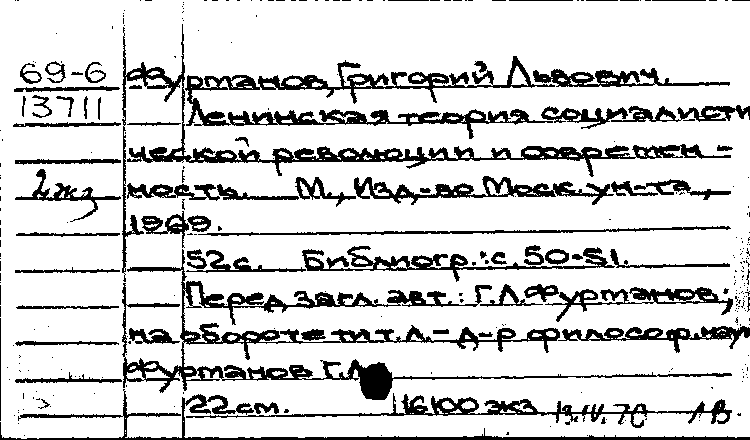 69-6 Фуртанов, Григорий Львович.
13711 Ленинская теория социалисти
ческой революции и современ-
2 экз ность. М., Изд-во Моск. ун-та,
1969.
52 с. Библиогр.: с. 50-51.
Перед загл. авт.: Г.Л. Фуртанов;
на обороте тит. л. - д-р философ. нау
Фуртанов Г.Л.
22 см. 16100 экз 13.IV.70